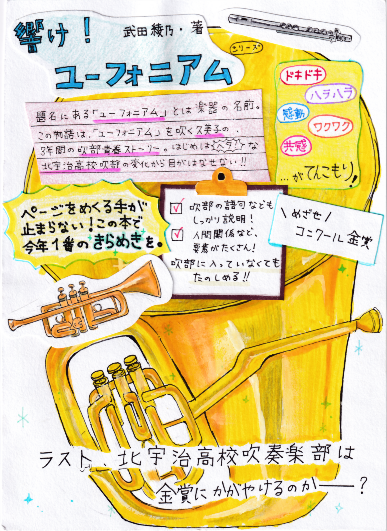 響け！
ユーフォニアム
武田綾乃・著
シリーズ
ドキドキ
ハラハラ
感動
ワクワク
共感
…がてんこもり！
題名にある「ユーフォニアム」とは楽器の名前。
この物語は、「ユーフォニアム」を吹く久美子の、
3年間の吹部青春ストーリー。はじめはヘラヘラな
北宇治高校吹部の変化から目がはなせない!!
ページをめくる手が
止まらない！この本で
今年1番のきらめきを。
吹部の語句なども
しっかり説明！
人間関係など、
要素がたくさん！
吹部に入っていなくても
たのしめる!!
\ めざせ /
コンクール金賞
ラスト、北宇治高校吹奏楽部は
金賞にかがやけるのか――？